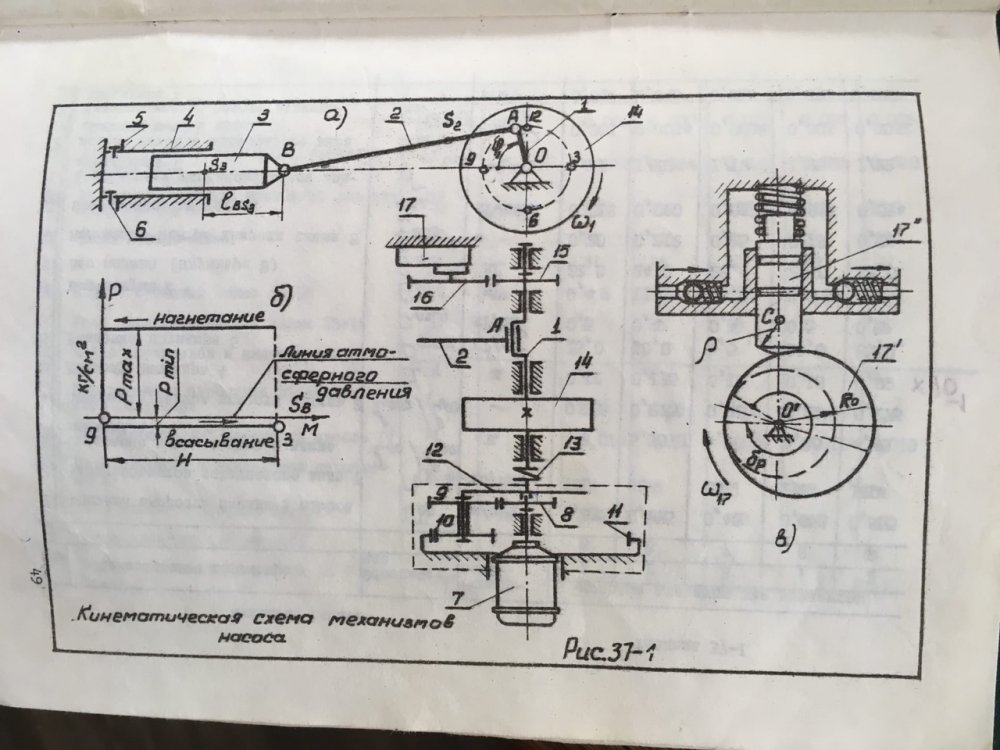 а)
5 4 3 2 1 14
S₂ A 12
B
φ₁
9 O 3
S₃
ℓBS₃
6
6
ω₁
17
15
16
A
2 1
14
13
12
9
10 8 11
7
б)
P
нагнетание
кг/см²
Pmax
Pmin
Линия атмо-
сферного
давления
SB
М
9 всасывание 3
H
17"
C
ρ
17'
O'
R₀
δр
ω₁₇
в)
Кинематическая схема механизмов
насоса
Рис.37-1
49